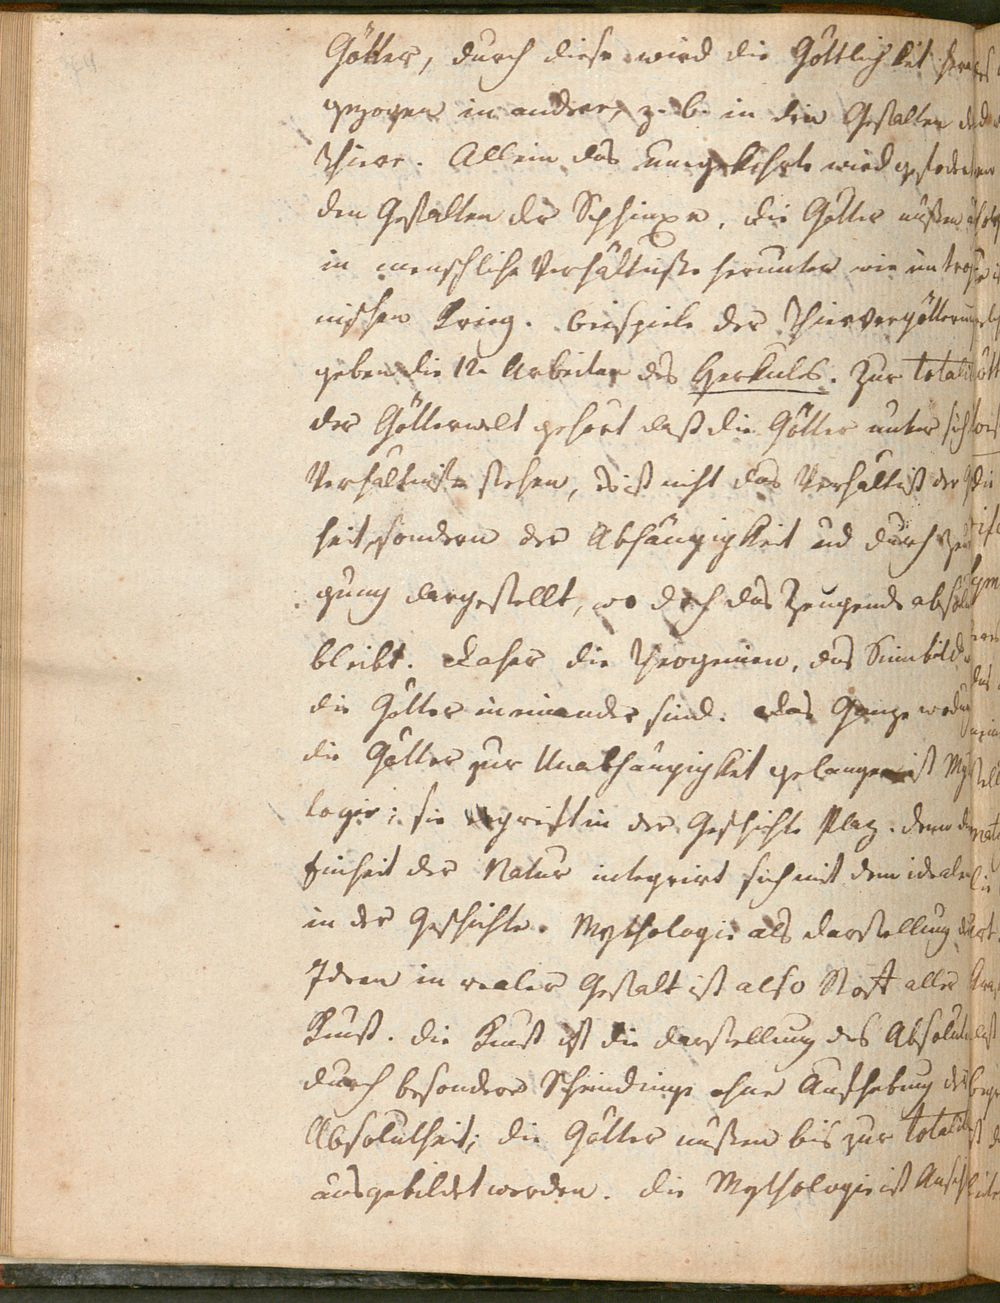 Götter, durch diese wird die Göttlichkeit
gezogen in andere, z. b. in die Gestalten
Thiere. Allein das umgekehrte wird
den Gestalten der Sphinxe, die Götter müßen
in menschliche Verhältniße herunter wie im troja
nischen Krieg. Beispiele der Thiervergötterung
geben die 12 Arbeiten des Herkules. Zur Totali
der Götterwelt gehört daß die Götter unter sich
Verhältniße stehen, es ist nicht das Verhältniß der
heit, sondern der Abhängigkeit und durch Zeu
gung dargestellt, wo doch das Zeugende absolut
bleibt. Daher die Theogonien, das Sinnbild
die Götter in einander sind. Das Ganze wodurch
die Götter zur Unabhängigkeit gelangen ist My
logie; sie ergreift in der Geschichte Plaz. denn die
Einheit der Natur integrirt sich mit dem idealen
in der Geschichte. Mythologie als Darstellung der
Ideen in realer Gestalt ist also Stoff aller
Kunst. die Kunst ist die Darstellung des Absoluten
durch besondere Scheindinge ohne Aufhebung der
Absolutheit; die Götter müßen bis zur Totalit
ausgebildet werden. Die Mythologie ist